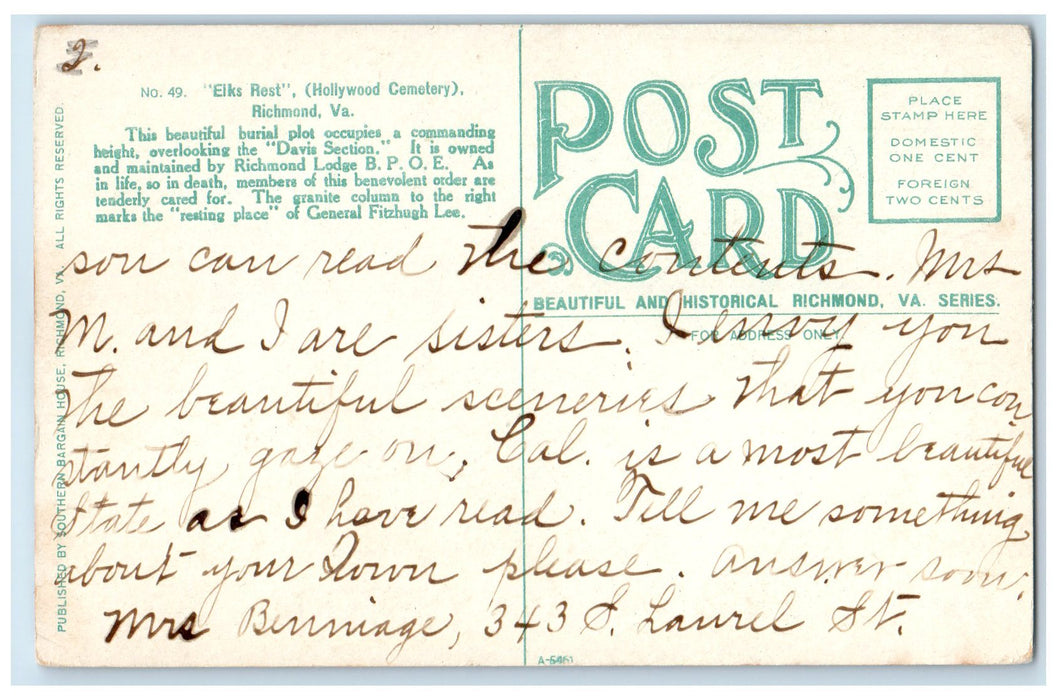 2.
No. 49. "Elks Rest", (Hollywood Cemetery),
Richmond, Va.
This beautiful burial plot occupies a commanding
height, overlooking the "Davis Section." It is owned
and maintained by Richmond Lodge B. P. O. E. As
in life, so in death, members of this benevolent order are
tenderly cared for. The granite column to the right
marks the "resting place" of General Fitzhugh Lee.
POST
CARD
BEAUTIFUL AND HISTORICAL RICHMOND, VA. SERIES.
FOR ADDRESS ONLY
PLACE
STAMP HERE
DOMESTIC
ONE CENT
FOREIGN
TWO CENTS
PUBLISHED BY SOUTHERN BARGAIN HOUSE, RICHMOND, VA. ALL RIGHTS RESERVED.
son can read the contents. Mrs
M. and I are sisters. I envy you
the beautiful sceneries that you con
stantly gaze on, Cal. is a most beautiful
State as I have read. Tell me something
about your Town please. Answer soon.
Mrs 343 S. Laurel St.